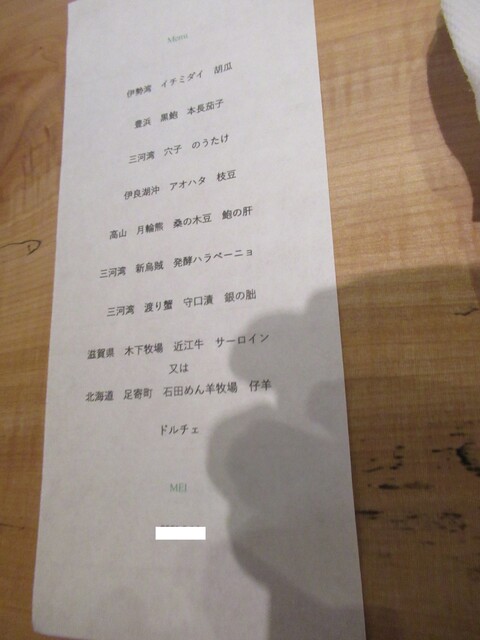 Menu
伊勢湾 イチミダイ 胡瓜
豊浜 黒鮑 本長茄子
三河湾 穴子 のうたけ
伊良湖沖 アオハタ 枝豆
高山 月輪熊 桑の木豆 鮑の肝
三河湾 新烏賊 発酵ハラペーニョ
三河湾 渡り蟹 守口漬 銀の朏
滋賀県 木下牧場 近江牛 サーロイン
又は
北海道 足寄町 石田めん羊牧場 仔羊
ドルチェ
MEI